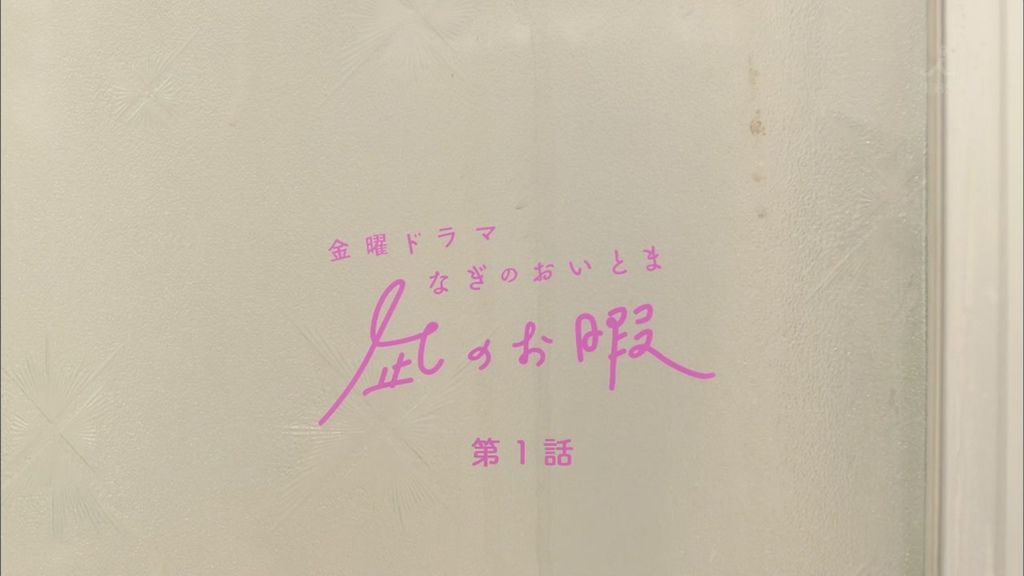 金曜ドラマ
なぎのおいとま
凪のお暇
第1話